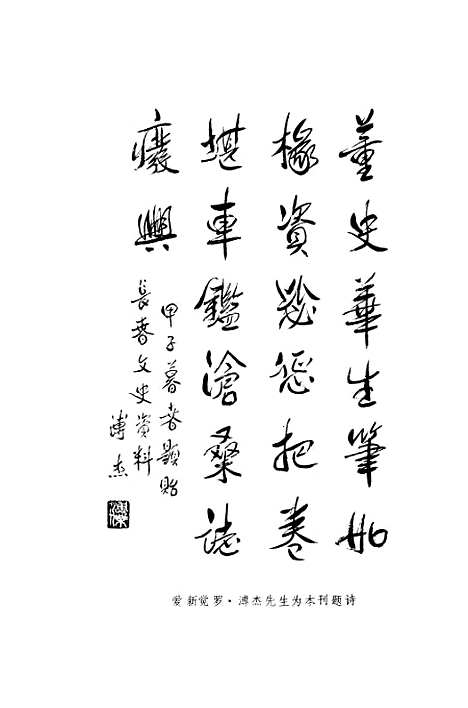 董史華生筆如
椽資毖惩把卷
堪車鑑滄桑誌
癈興
甲子暮春題貽
長春文史資料
溥杰
溥傑
爱新觉罗·溥杰先生为本刊题诗